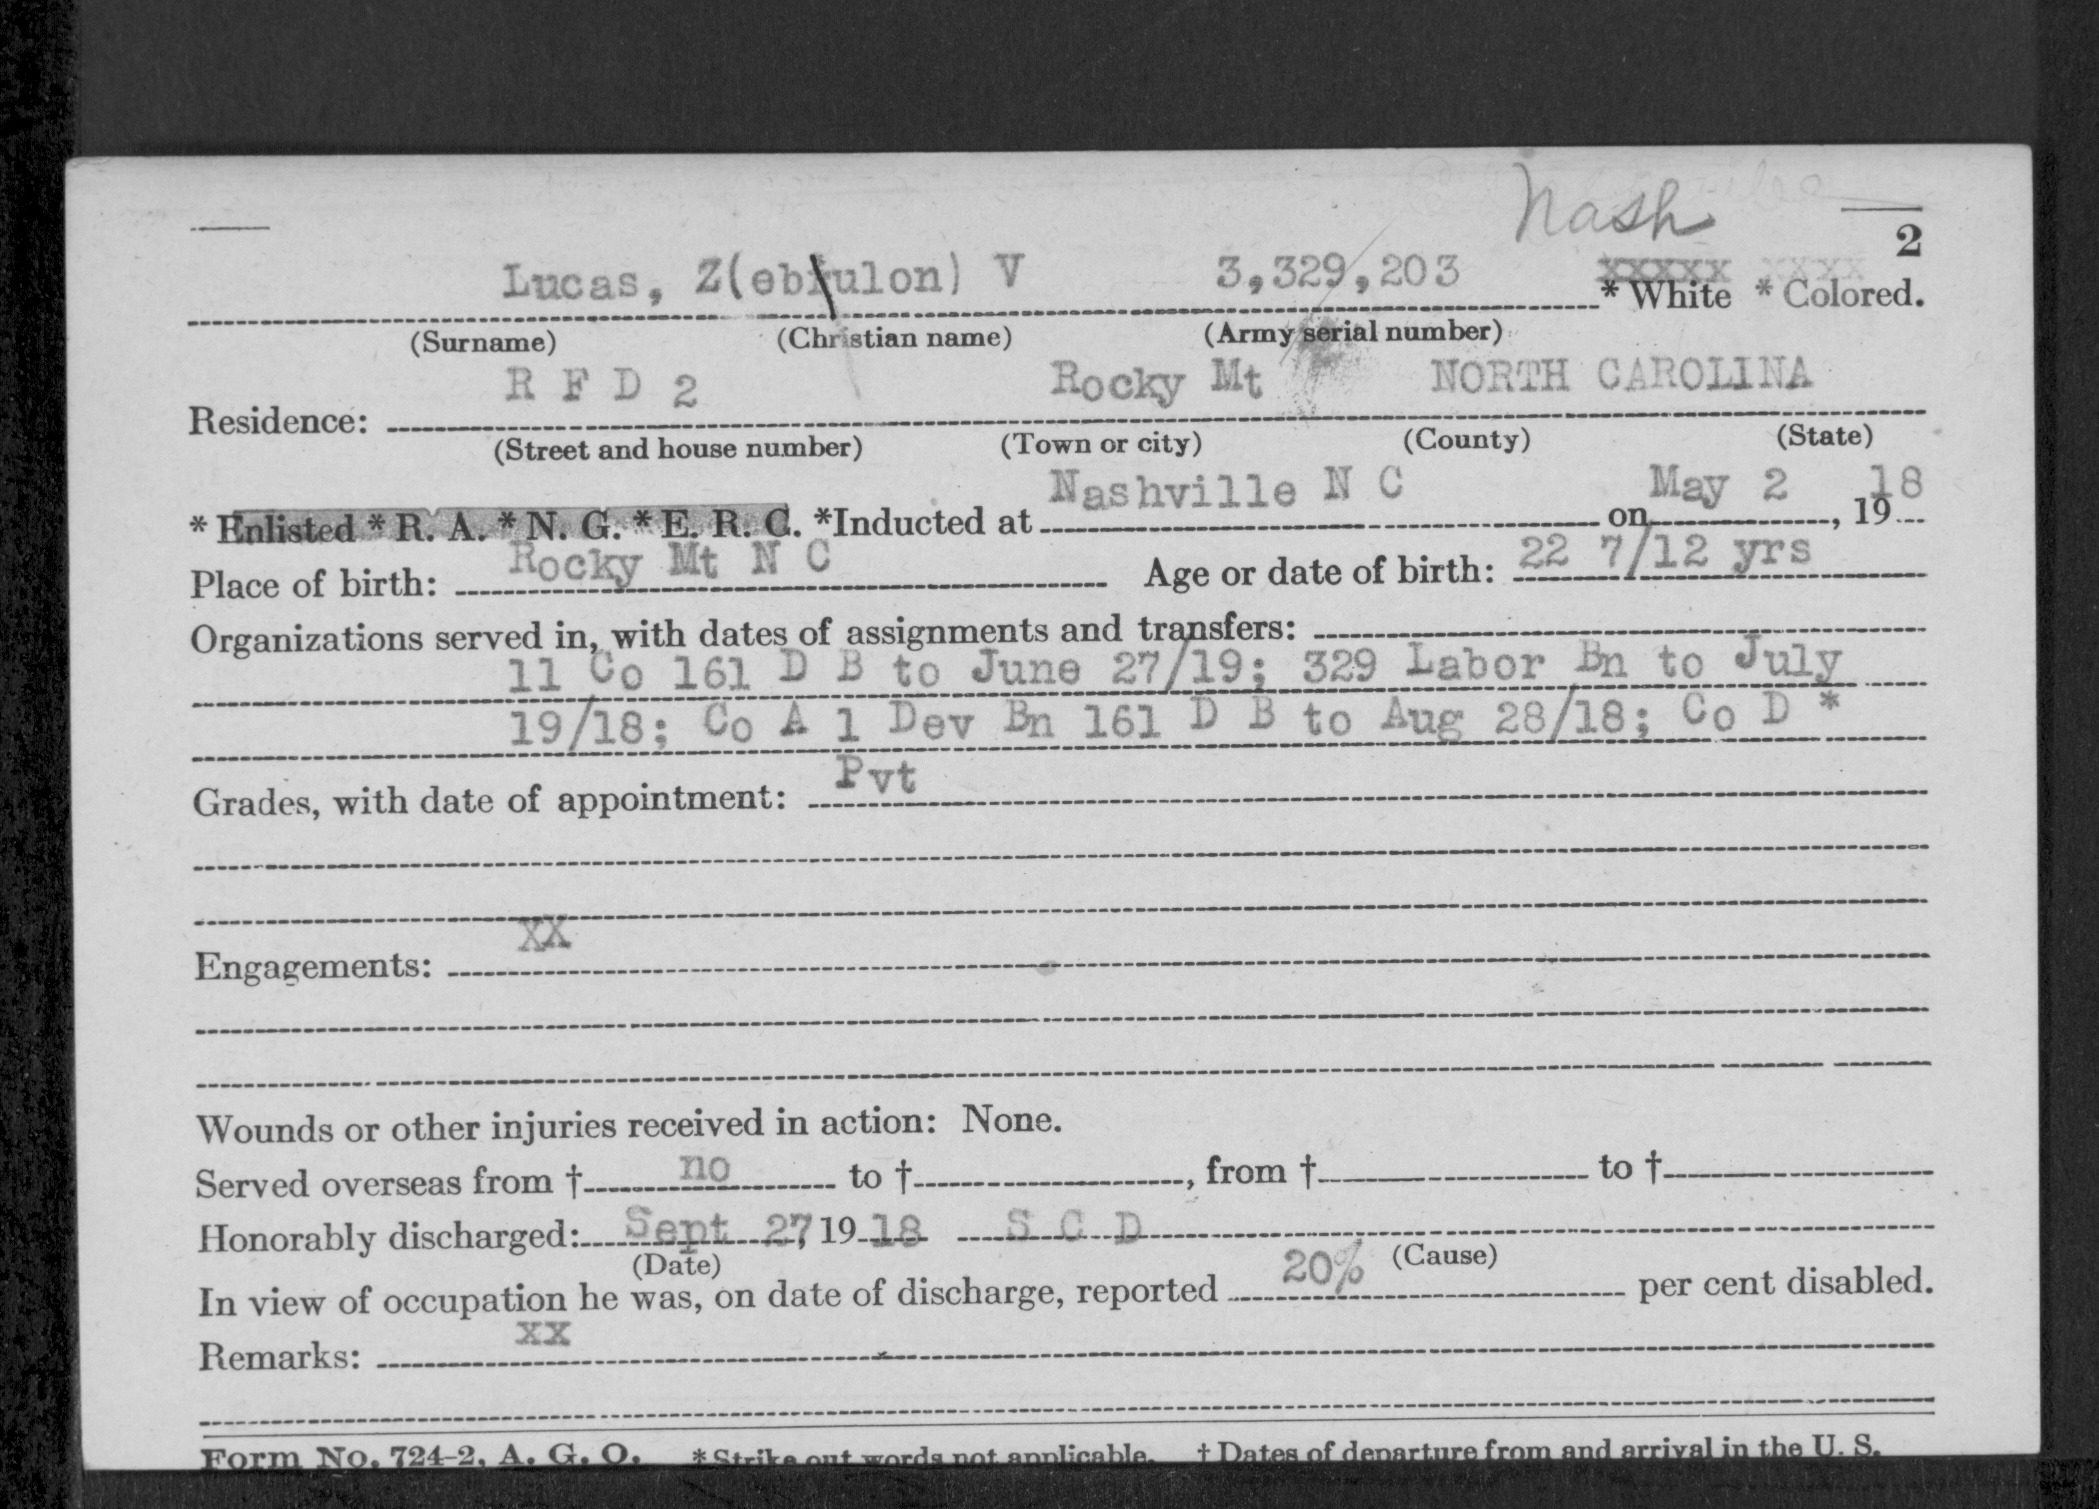 Nash
2
Lucas, Z(ebulon) V 3,329,203 xxxxx xxxx
* White * Colored.
(Surname) (Christian name) (Army serial number)
R F D 2 Rocky Mt NORTH CAROLINA
Residence:
(Street and house number) (Town or city) (County) (State)
Nashville N C May 2 18
* Enlisted * R. A. * N. G. * E. R. C. *Inducted at on , 19
Rocky Mt N C 22 7/12 yrs
Place of birth: Age or date of birth:
Organizations served in, with dates of assignments and transfers:
11 Co 161 D B to June 27/19; 329 Labor Bn to July
19/18; Co A 1 Dev Bn 161 D B to Aug 28/18; Co D *
Pvt
Grades, with date of appointment:
XX
Engagements:
Wounds or other injuries received in action: None.
Served overseas from † no to † , from † to †
Honorably discharged: Sept 27, 19 18 S C D
(Date) (Cause)
In view of occupation he was, on date of discharge, reported 20% per cent disabled.
xx
Remarks:
Form No. 724-2, A. G. O. * Strike out words not applicable. † Dates of departure from and arrival in the U. S.